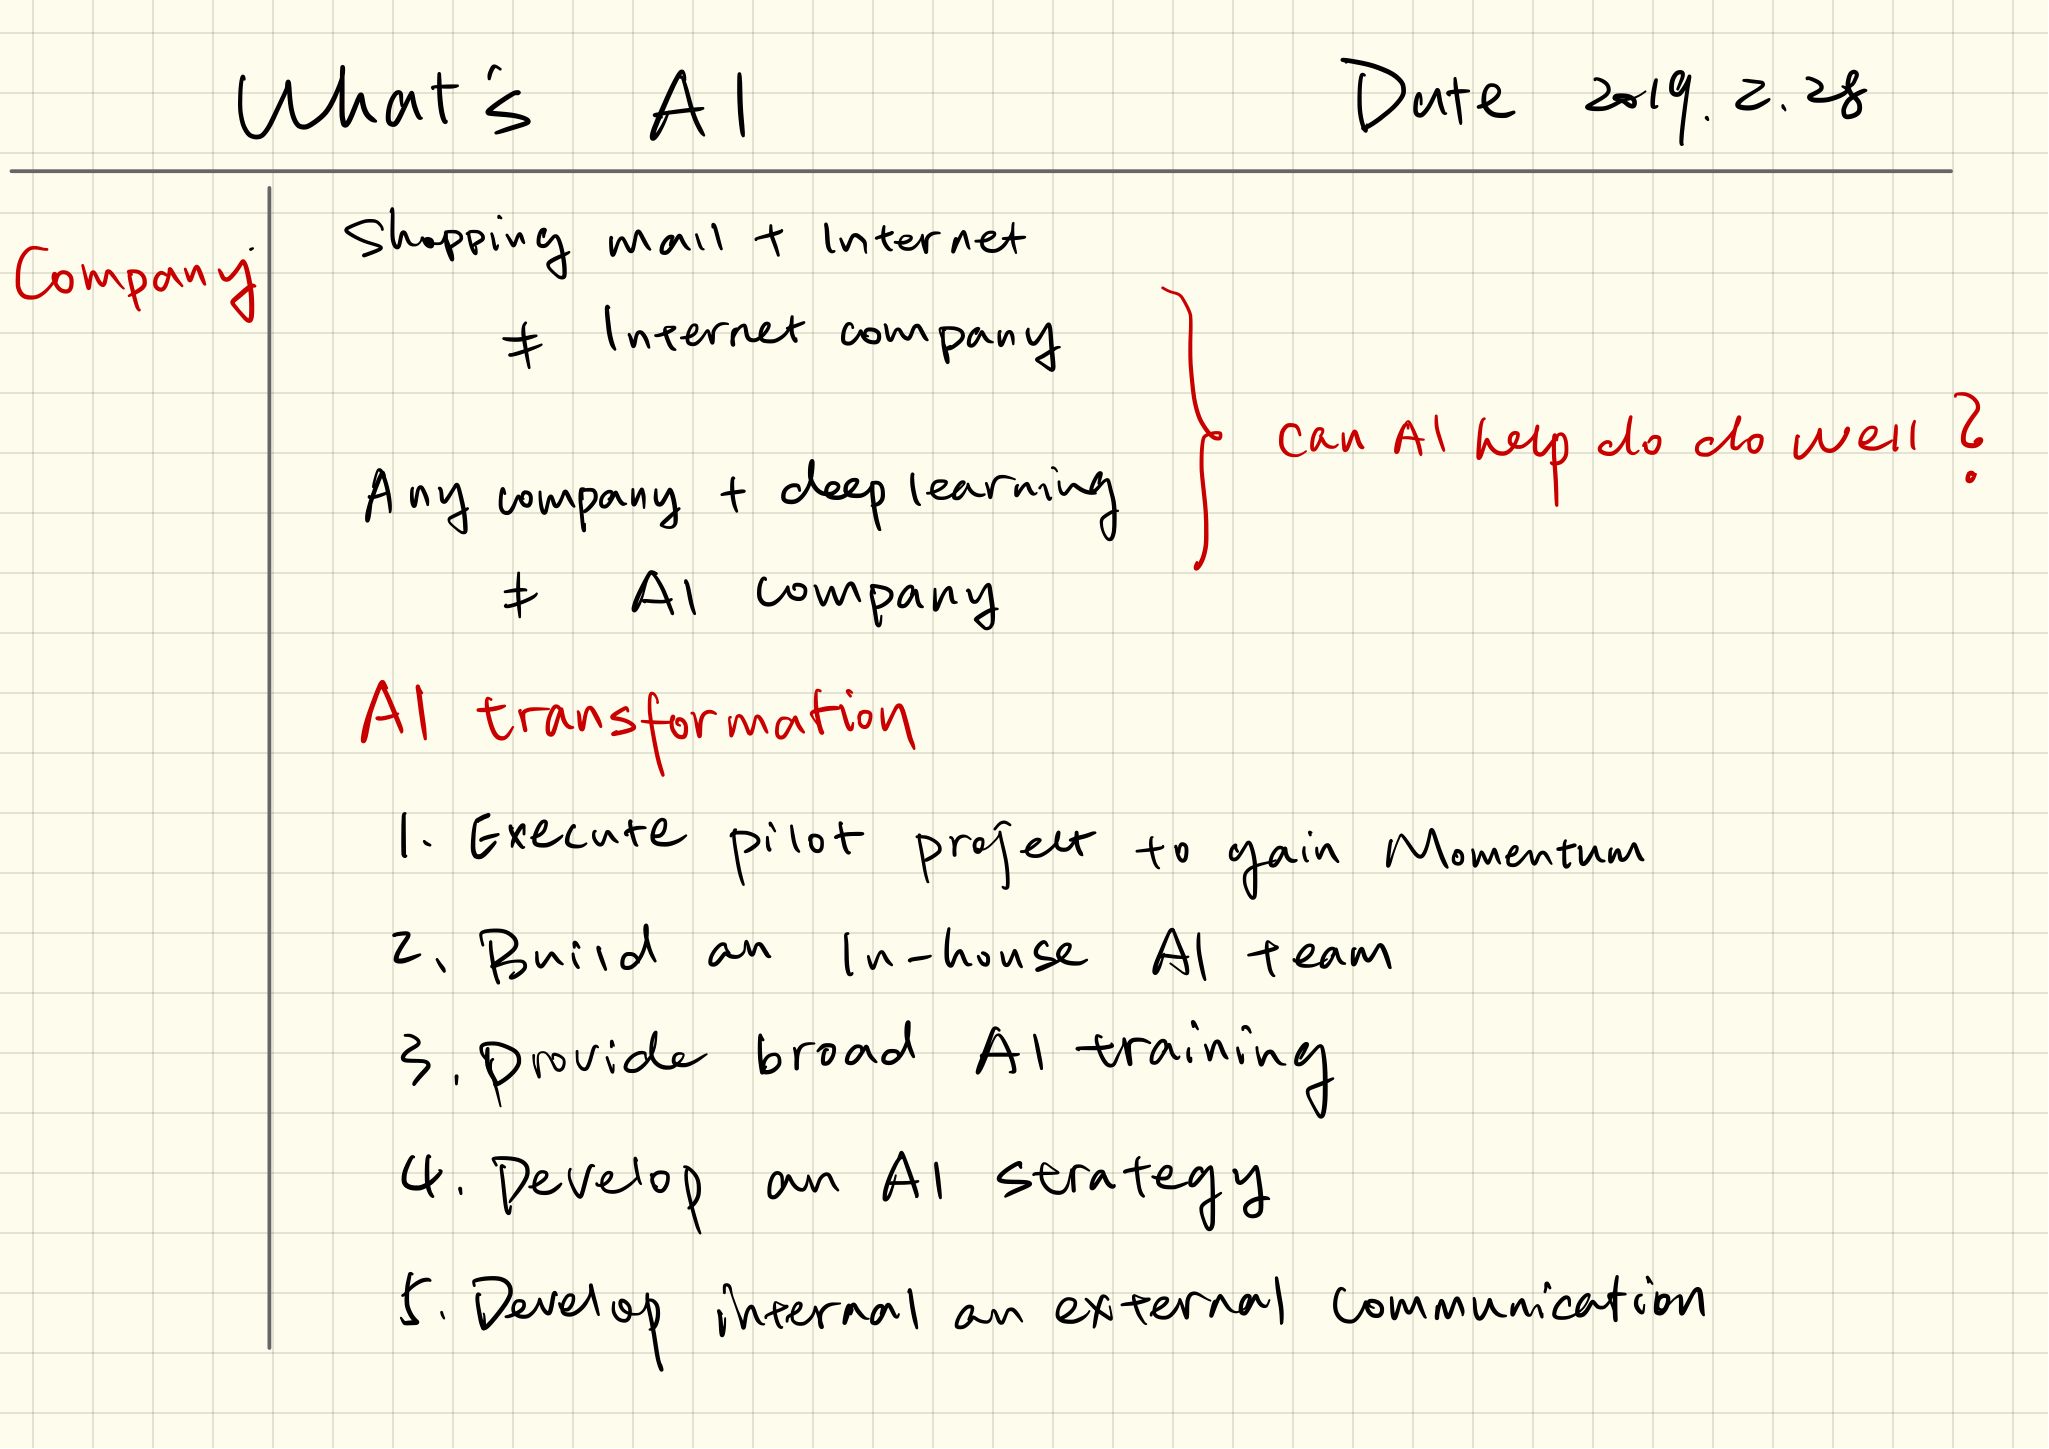 What's AI
Date 2019.2.28
Company
Shopping mail + Internet
≠ Internet company
Any company + deep learning
≠ AI company
can AI help do do well?
AI transformation
1. Execute pilot project to gain Momentum
2. Build an In-house AI team
3. Provide broad AI training
4. Develop an AI strategy
5. Develop internal an external communication